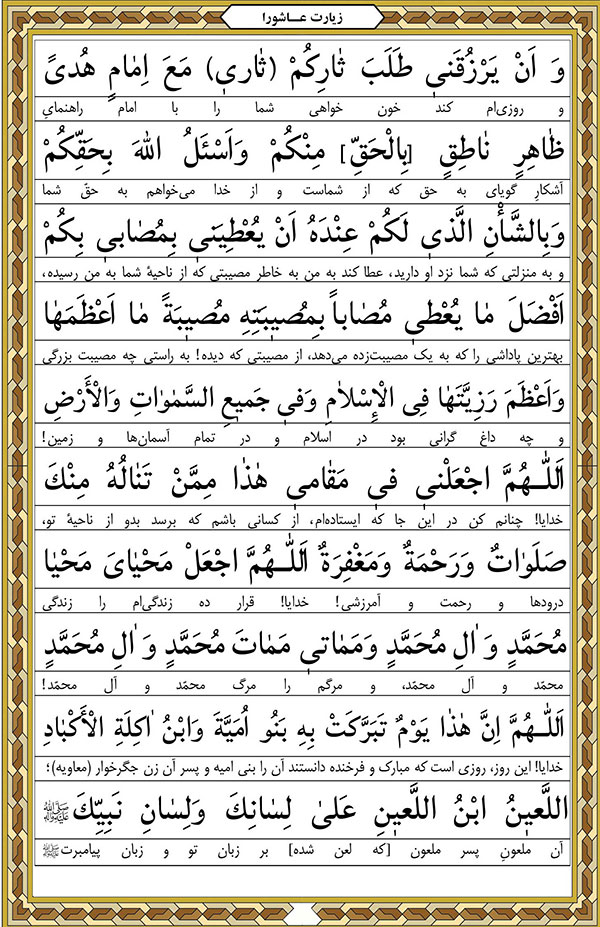 زیارت عـــاشورا
وَ اَنْ يَرْزُقَنى طَلَبَ ثٰارِكُمْ (ثٰارى) مَعَ اِمٰامٍ هُدىً
و روزی‌ام کند خون خواهی شما را با امام راهنمایِ
ظٰاهِرٍ نٰاطِقٍ [بِالْحَقِّ] مِنْكُمْ وَاَسْئَلُ اللهَ بِحَقِّكُمْ
آشکارِ گویای به حق که از شماست و از خدا می‌خواهم به حقّ شما
وَبِالشَّأْنِ الَّذى لَكُمْ عِنْدَهُ اَنْ يُعْطِيَنى بِمُصٰابى بِكُمْ
و به منزلتی که شما نزد او دارید، عطا کند به من به خاطر مصیبتی که از ناحیهٔ شما به من رسیده،
اَفْضَلَ مٰا يُعْطى مُصٰاباً بِمُصيبَتِهِ مُصيبَةً مٰا اَعْظَمَهٰا
بهترین پاداشی را که به یک مصیبت‌زده می‌دهد، از مصیبتی که دیده! به راستی چه مصیبت بزرگی
وَاَعْظَمَ رَزِيَّتَهٰا فِى الْإِسْلٰامِ وَفى جَميعِ السَّمٰوٰاتِ وَالْأَرْضِ
و چه داغ گرانی بود در اسلام و در تمام آسمان‌ها و زمین!
اَللّٰـــهُمَّ اجْعَلْنى فى مَقٰامى هٰذٰا مِمَّنْ تَنٰالُهُ مِنْكَ
خدایا! چنانم کن در این جا که ایستاده‌ام، از کسانی باشم که برسد بدو از ناحیهٔ تو،
صَلَوٰاتٌ وَرَحْمَةٌ وَمَغْفِرَةٌ اَللّٰـــهُمَّ اجْعَلْ مَحْيٰاىَ مَحْيٰا
درودها و رحمت و آمرزشی! خدایا! قرار ده زندگی‌ام را زندگی
مُحَمَّدٍ وَ اٰلِ مُحَمَّدٍ وَمَمٰاتى مَمٰاتَ مُحَمَّدٍ وَ اٰلِ مُحَمَّدٍ
محمّد و آل محمّد، و مرگم را مرگ محمّد و آل محمّد!
اَللّٰـــهُمَّ اِنَّ هٰذٰا يَوْمٌ تَبَرَّكَتْ بِهِ بَنُو اُمَيَّةَ وَابْنُ اٰكِلَةِ الْأَكْبٰادِ
خدایا! این روز، روزی است که مبارک و فرخنده دانستند آن را بنی امیه و پسر آن زن جگرخوار (معاویه)؛
اللَّعينُ ابْنُ اللَّعينِ عَلىٰ لِسٰانِكَ وَلِسٰانِ نَبِيِّكَ ﷺ
آن ملعونِ پسر ملعون [که لعن شده] بر زبان تو و زبان پیامبرت ﷺ